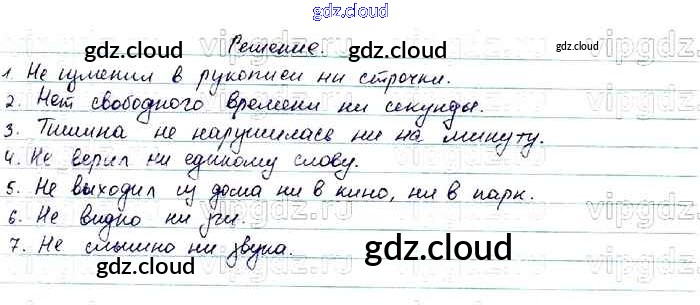 gdz.cloud
Решение.
1. Не изменил в рукописи ни строчки.
2. Нет свободного времени ни секунды.
3. Тишина не нарушилась ни на минуту.
4. Не верил ни единому слову.
5. Не выходил из дома ни в кино, ни в парк.
6. Не видно ни зги.
7. Не слышно ни звука.
gdz.cloud
gdz.cloud
gdz.cloud
gdz.cloud
gdz.cloud
gdz.cloud